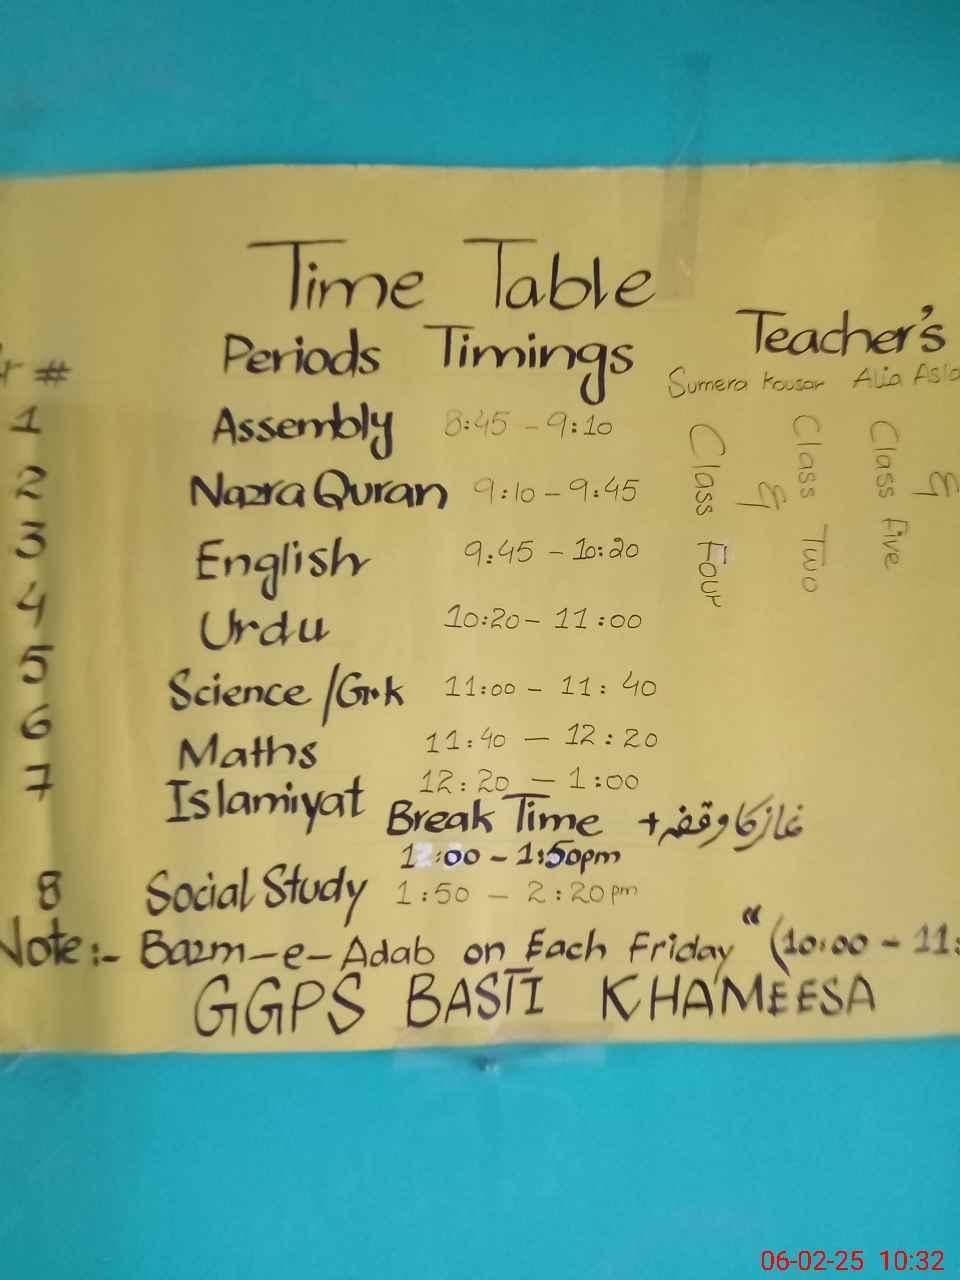 Time Table
# Periods Timings Teacher's
Sumera Kousar Alia
1 Assembly 8:45 - 9:10
2 Nazra Quran 9:10 - 9:45
3 English 9:45 - 10:20
4 Urdu 10:20 - 11:00
5 Science/G.k 11:00 - 11:40
6 Maths 11:40 - 12:20
7 Islamiyat 12:20 - 1:00
Class Four
&
Class Two
Class Five
&
Break Time + نماز کا وقفہ
1:00 - 1:50pm
8 Social Study 1:50 - 2:20pm
Note:- Bazm-e-Adab on Each Friday " (10:00 - 11:
GGPS BASTI KHAMEESA
06-02-25 10:32